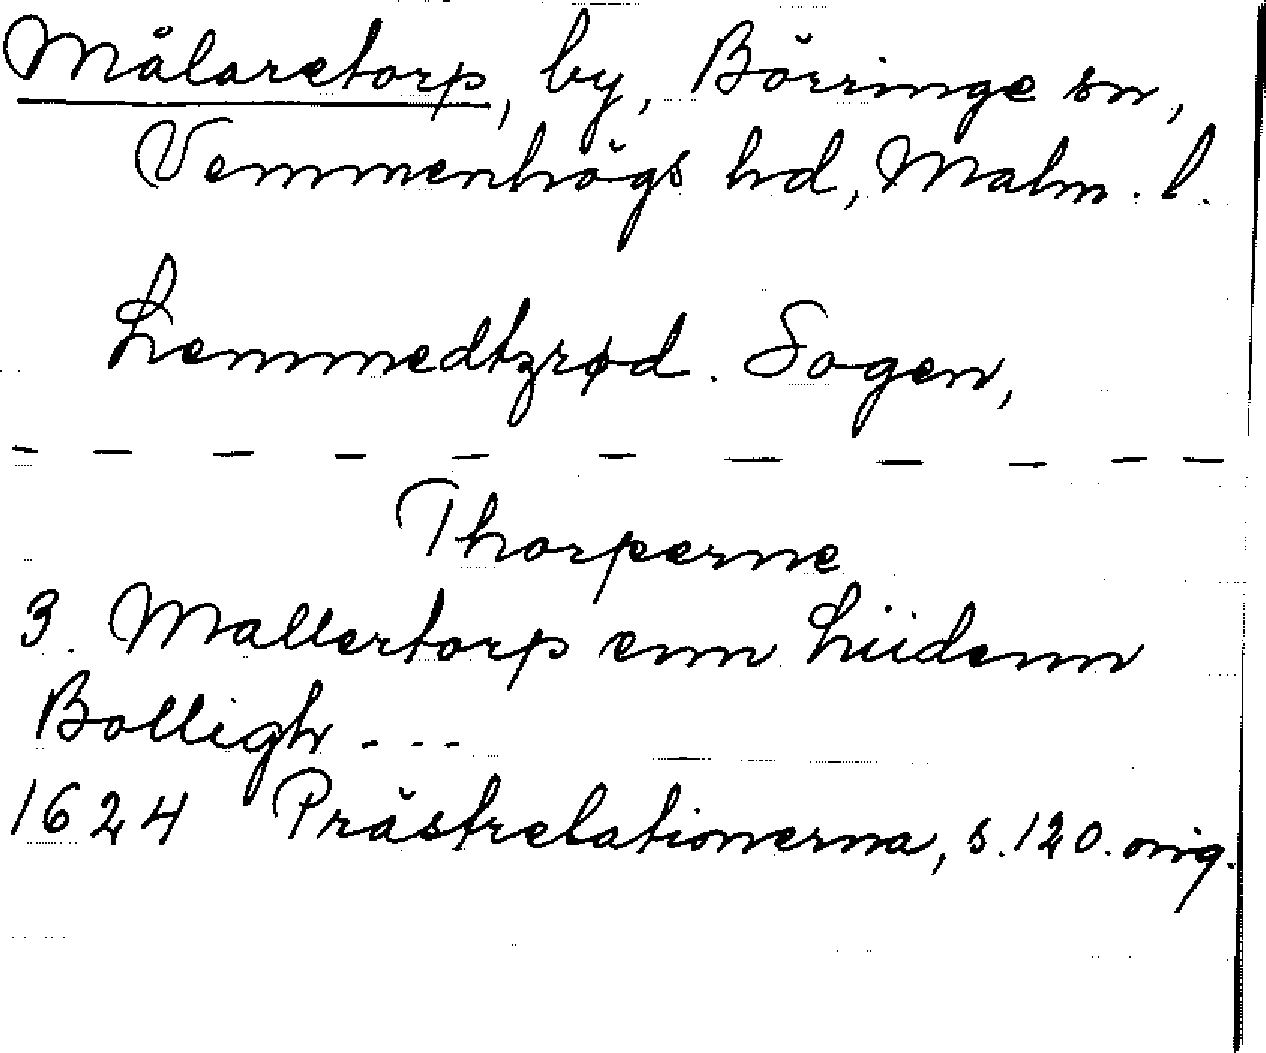 Målaretorp, by, Börringe sn,
Vemmenhögs hd, Malm. l.
Lemmedtzrød. Sogen,
— — — — — — — — — — —
Thorperne
3. Mallertorp enn Liidenn
Bolligh - - -
1624 Prästrelationerna, s. 120. orig.